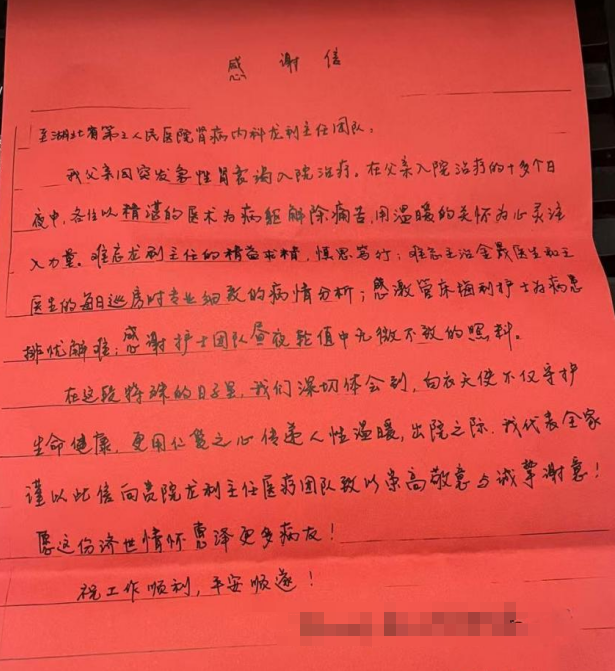 感谢信
至湖北省第三人民医院肾病内科龙利主任团队:
我父亲因突发急性肾衰竭入院治疗,在父亲入院治疗的十多个日
夜中,各位以精湛的医术为病躯解除痛苦,用温暖的关怀为心灵注
入力量。难忘龙利主任的精益求精,慎思笃行;难忘主治金晟医生和王
医生的每日巡房时专业细致的病情分析;感激管床梅利护士为病患
排忧解难;感谢护士团队昼夜轮值中无微不致的照料。
在这段特殊的日子里,我们深切体会到,白衣天使不仅守护
生命健康,更用仁爱之心传递人性温暖,出院之际,我代表全家
谨以此信向贵院龙利主任医疗团队致以崇高敬意与诚挚谢意!
愿这份济世情怀惠泽更多病友!
祝工作顺利,平安顺遂!